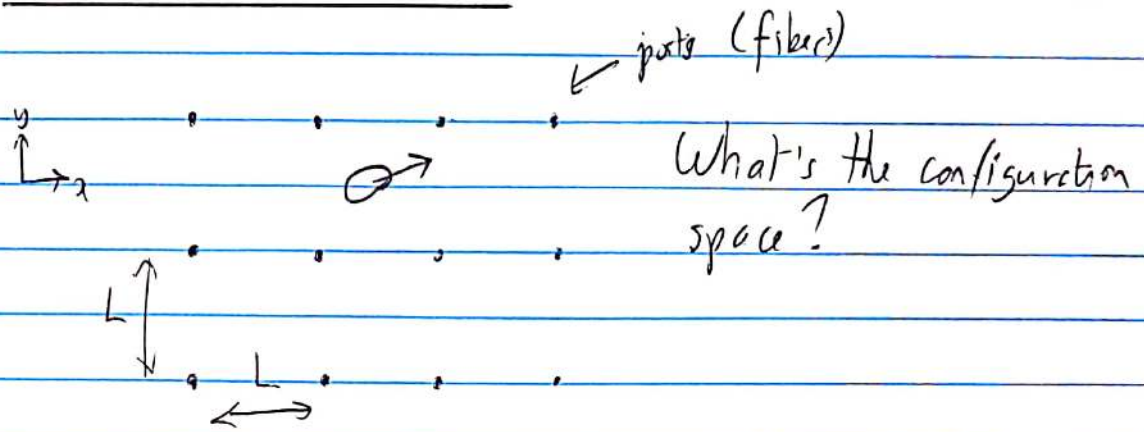 ports (fibers)
y
x
What's the configuration
space?
L
L